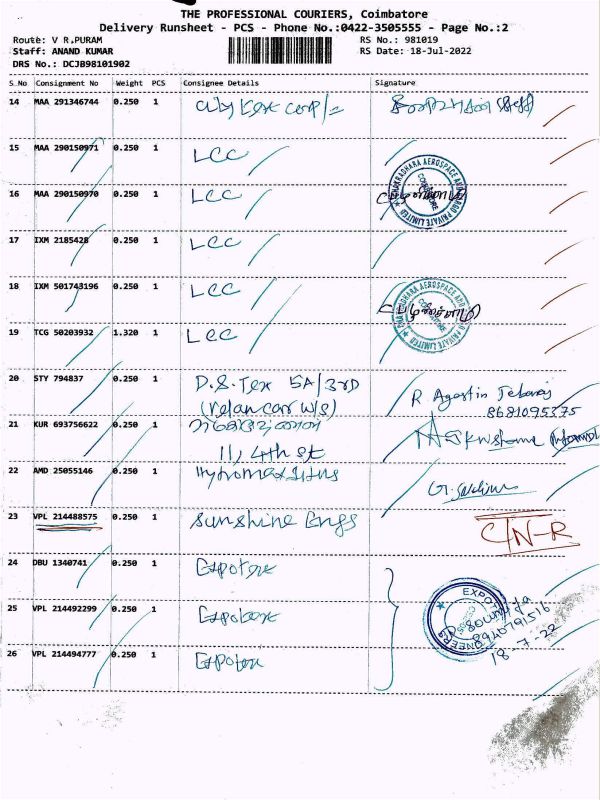 THE PROFESSIONAL COURIERS, Coimbatore
Delivery Runsheet - PCS - Phone No.:0422-3505555 - Page No.:2
Route: V R.PURAM RS No.: 981019
Staff: ANAND KUMAR RS Date: 18-Jul-2022
DRS No.: DCJB98101902
S No Consignment No Weight PCS Consignee Details Signature
14 MAA 291346744 0.250 1
15 MAA 290150971 0.250 1 LCC
16 MAA 290150970 0.250 1 LCC
17 IXM 2185428 0.250 1 LCC
18 IXM 501743196 0.250 1 LCC
19 TCG 50203932 1.320 1 LCC
20 STY 794837 0.250 1 D.S.Tex 5A/3rD R Agastin Jebaraj
(velan car w/s) 8681095375
21 KUR 693756622 0.250 1
11, 4th st
22 AMD 25055146 0.250 1
23 VPL 214488575 0.250 1 Sunshine Engs C/N-R
24 DBU 1340741 0.250 1 Expotex
25 VPL 214492299 0.250 1 Expotex
26 VPL 214494777 0.250 1 Expotex
Sowmya
8940791516
18-7-22